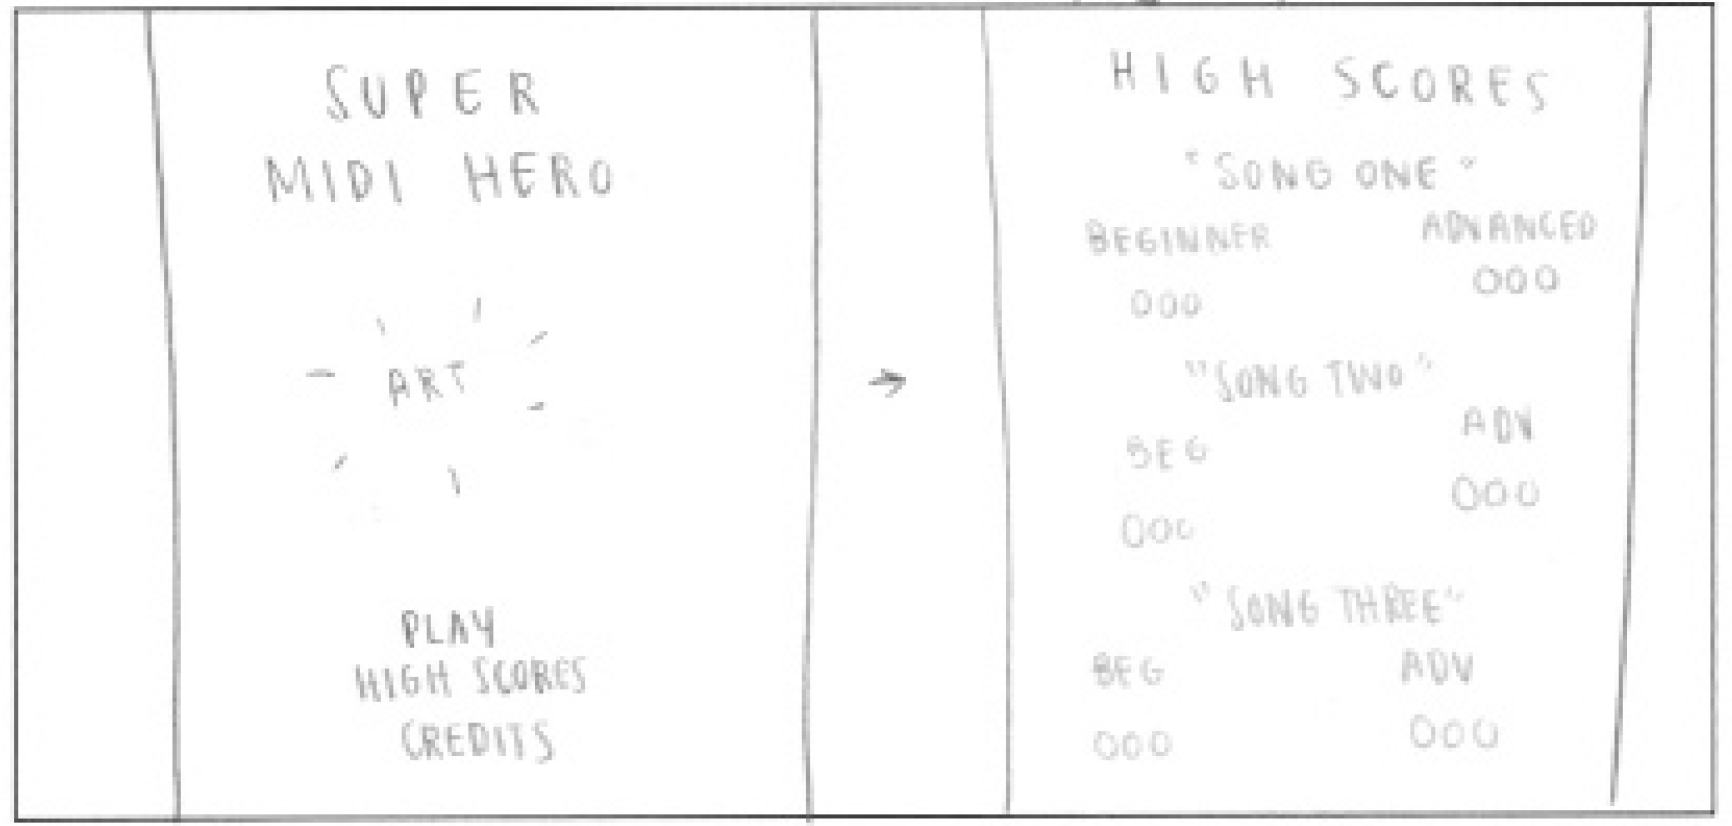 SUPER
MIDI HERO
ART
PLAY
HIGH SCORES
CREDITS
HIGH SCORES
"SONG ONE"
BEGINNER ADVANCED
000 000
"SONG TWO"
BEG ADV
000 000
"SONG THREE"
BEG ADV
000 000